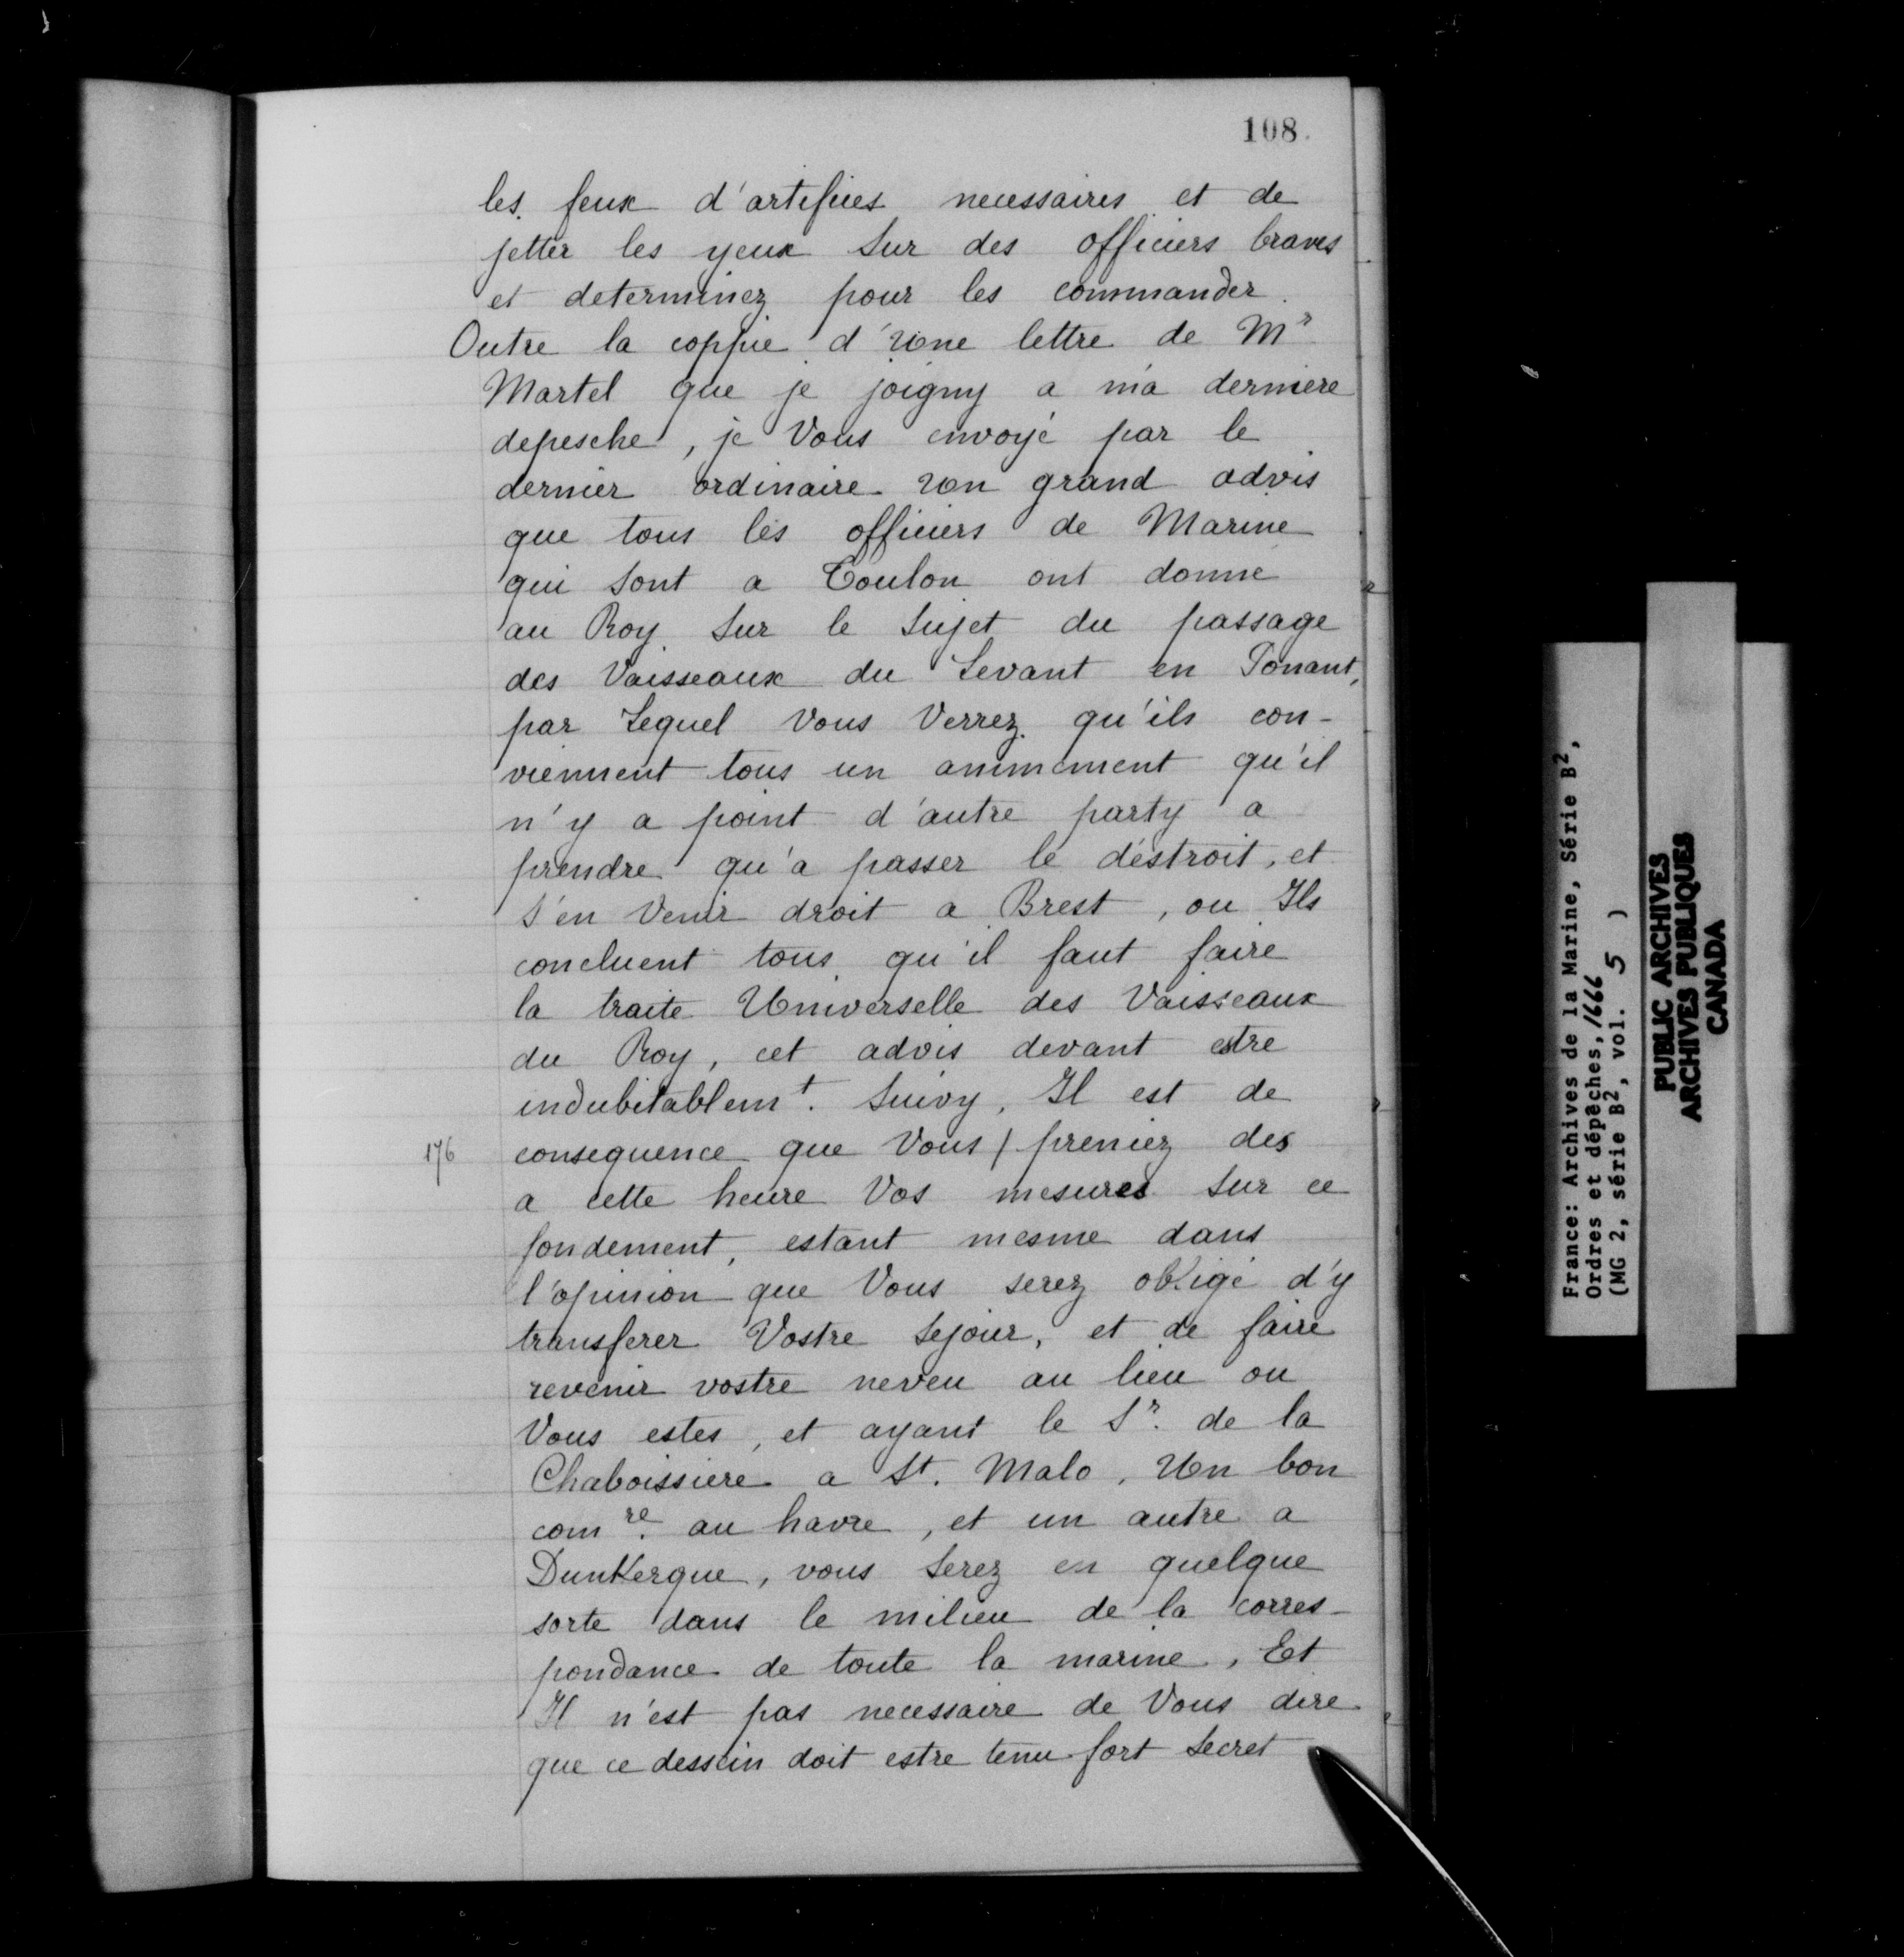 108.
les feux d'artifices necessaires et de
jetter les yeux sur des officiers braves
et determinez pour les commander.
Outre la coppie d'Une lettre de Mr
Martel que je joigny a ma derniere
depesche, je Vous envoyé par le
dernier ordinaire Un grand advis
que tous les officiers de Marine
qui sont a Toulon ont donné
au Roy sur le sujet du passage
des Vaisseaux du Levant en Ponant,
par Lequel Vous Verrez qu'ils con-
viennent tous un animement qu'il
n'y a point d'autre party a
prendre qu'a passer le destroit, et
s'en Venir droit a Brest, ou Ils
concluent tous qu'il faut faire
la traite Universelle des Vaisseaux
du Roy, cet advis devant estre
indubitablemt. Suivy, Il est de
176 consequence que Vous / preniez des
a cette heure Vos mesures sur ce
fondement, estant mesme dans
l'opinion que Vous serez obligé d'y
transferer Vostre Sejour, et de faire
revenir vostre neveu au lieu ou
Vous estes, et ayant le Sr. de la
Chaboissiere a St. Malo, Un bon
comre. au havre, et un autre a
DunKerque, vous Serez en quelque
sorte dans le milieu de la corres-
pondance de toute la marine, Et
Il n'est pas necessaire de Vous dire
que ce dessein doit estre tenu fort Secret
France: Archives de la Marine, Série B2,
Ordres et dépêches, 1666
(MG 2, série B2, vol. 5 )
PUBLIC ARCHIVES
ARCHIVES PUBLIQUES
CANADA